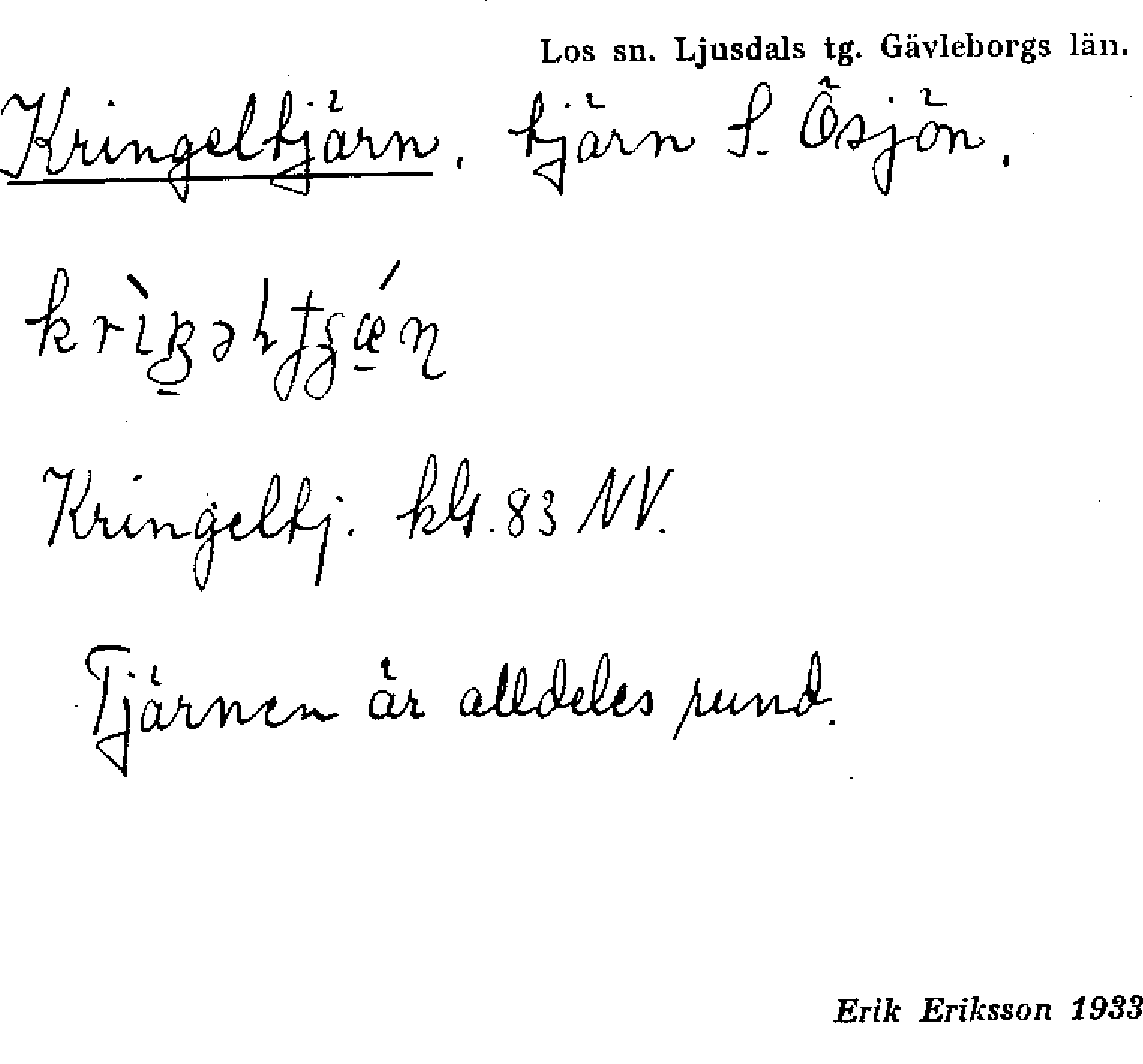 Los sn. Ljusdals tg. Gävleborgs län.
Kringeltjärn. tjärn S. Ösjön.
Kringeltj. kbl. 83 NV.
Tjärnen är alldeles rund.
Erik Eriksson 1933